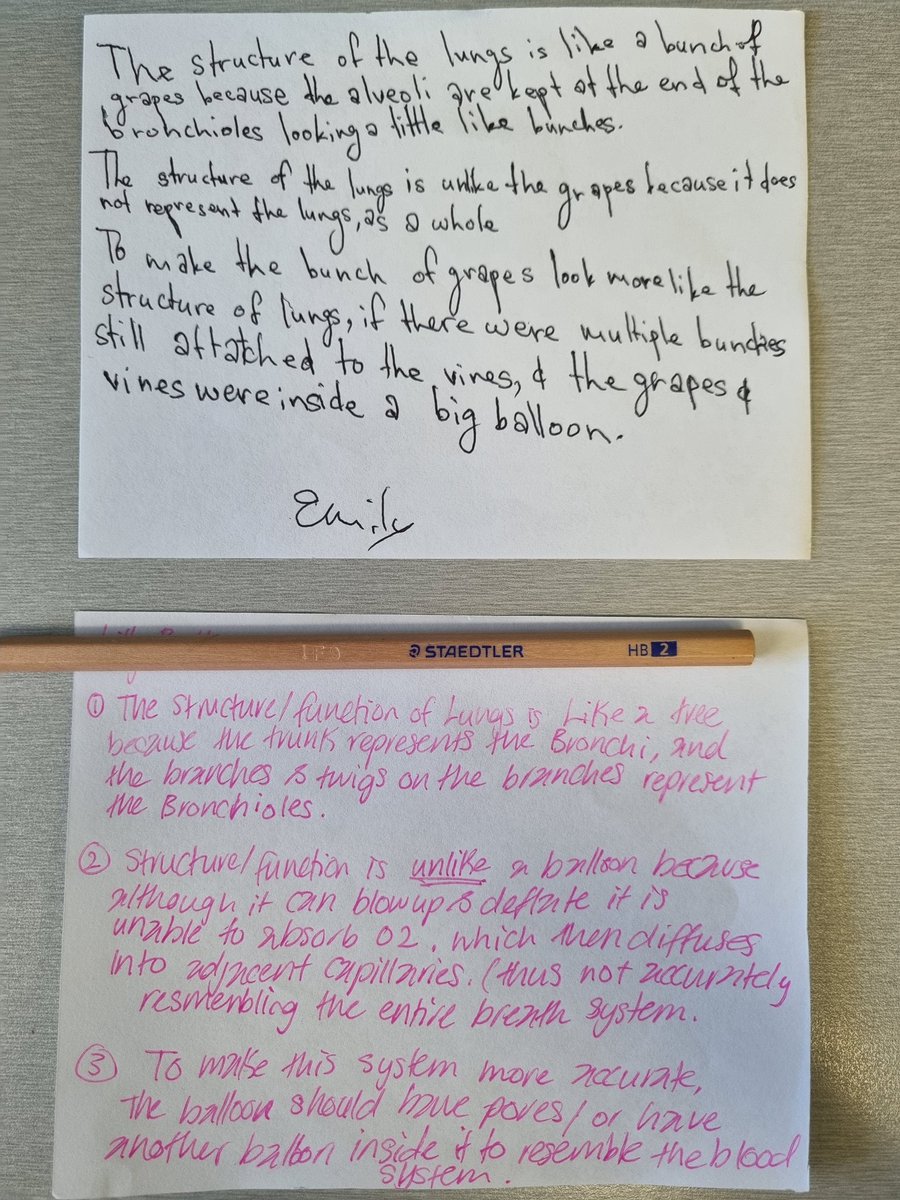 The structure of the lungs is like a bunch of
grapes because the alveoli are kept at the end of the
bronchioles looking a little like bunches.
The structure of the lungs is unlike the grapes because it does
not represent the lungs, as a whole
To make the bunch of grapes look more like the
structure of lungs, if there were multiple bunches
still attatched to the vines, & the grapes &
vines were inside a big balloon.
Emily
STAEDTLER HB 2
① The structure/function of Lungs is Like a tree
because the trunk represents the Bronchi, and
the branches & twigs on the branches represent
the Bronchioles.
② Structure/function is unlike a balloon because
although it can blow up & deflate it is
unable to absorb O2. which then diffuses
into adjacent capillaries. (thus not accurately
resmenbling the entire breath system.
③ To make this system more accurate,
the balloon should have pores/or have
another balloon inside it to resemble the blood
system.